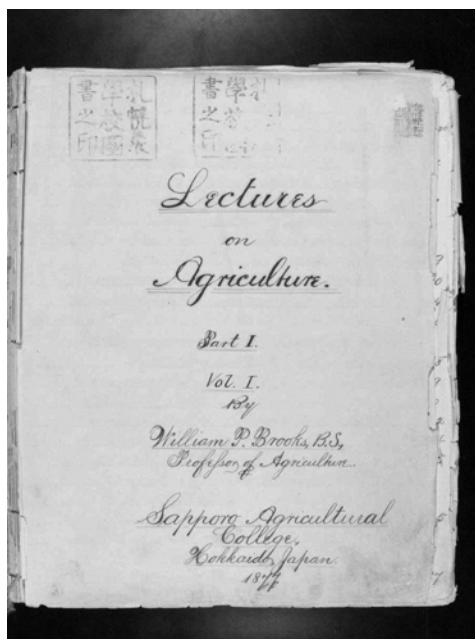 札幌農
學校圖
書之印
書之印
Lectures
on
Agriculture.
Part I.
Vol. I.
By
William P. Brooks, B.S.,
Professor of Agriculture.
Sapporo Agricultural
College,
Hokkaido, Japan.
1877